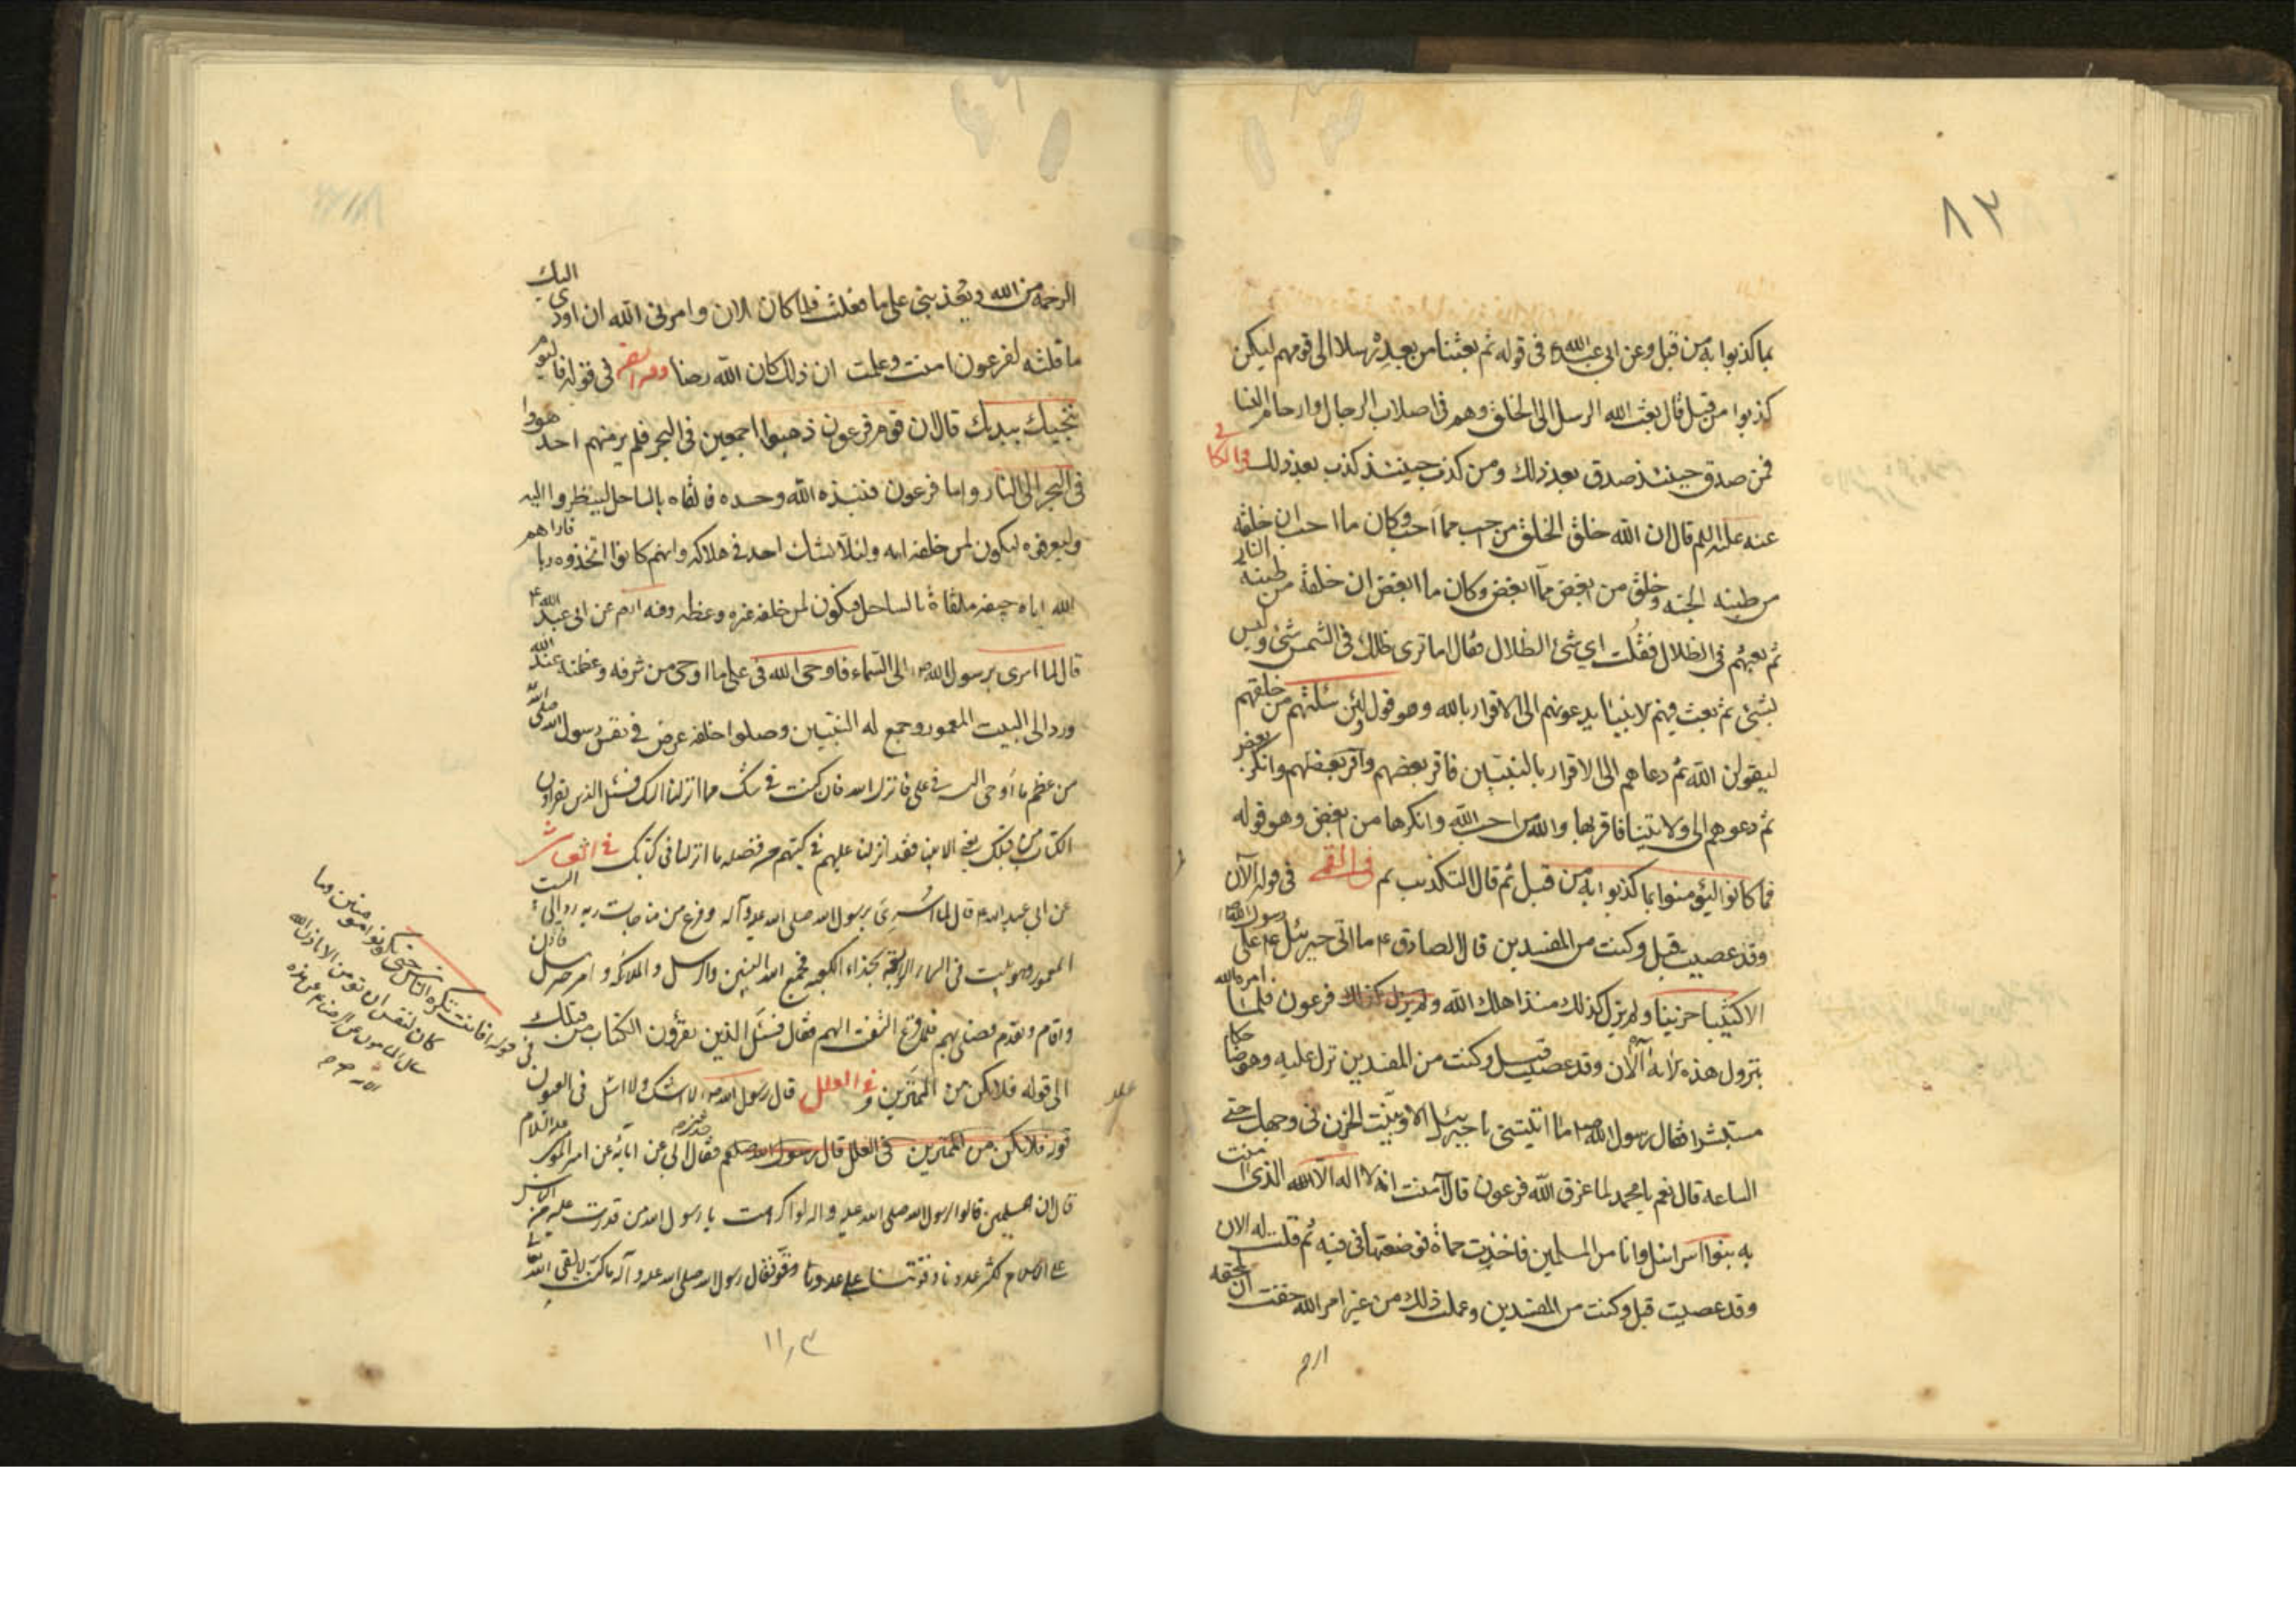 ٨٣
بما كذبوا به من قبل وعن ابى عبد الله ع فى قوله ثم بعثنا من بعده رسلا الى قومهم ليكن
كذبوا من قبل قال بعث الله الرسل الى الخلق وهم فى اصلاب الرجال وارحام النسا
فمن صدق حينئذ صدق بعد ذلك ومن كذب حينئذ كذب بعد ذلك فى الكا فى
عنه عليه السلم قال ان الله خلق الخلق من احب مما احب وكان ما احب ان خلقه
من طينه الجنه وخلق من ابغض مما ابغض وكان ما ابغض ان خلقه من طينة النار
ثم بعثهم فى الظلال فقلت اي شئ الظلال فقال اما ترى ظلك فى الشمس شئ وليس
بشئ ثم بعث فيهم الانبيا يدعونهم الى الاقرار بالله وهو قوله ولئن سئلتهم من خلقهم
ليقولن الله ثم دعاهم الى الاقرار بالنبيين فاقر بعضهم وانكر بعض
ثم دعوهم الى ولايتنا فاقر بها والله من احب الله وانكرها من ابغض وهو قوله
فما كانوا ليؤمنوا بما كذبوا به من قبل ثم قال التكذيب ثم فى القمى فى قوله آلآن
وقد عصيت قبل وكنت من المفسدين قال الصادق ع ما اتى جبرئيل ع على رسول الله
الا كئيبا حزينا ولم يزل كذلك منذ اهلك الله فرعون فلما امره الله
بنزول هذه الاية آلآن وقد عصيت قبل وكنت من المفسدين نزل عليه وهو ضاحكا
مستبشرا فقال رسول الله ص ما اتيتنى يا جبرئيل الا وتبينت الحزن فى وجهك حتى
الساعة قال نعم يا محمد لما غرق الله فرعون قال آمنت انه لا اله الا الله الذى آمنت
به بنوا اسرائيل وانا من المسلمين فاخذت حماة فوضعتها فى فيه ثم قلت له الان
وقد عصيت قبل وكنت من المفسدين وعملت ذلك من غير امر الله خفت ان تلحقه
الرحمة من الله ويعذبنى على ما فعلت فلما كان الان وامرنى الله ان اؤدى اليك
ما قلته لفرعون امنت وعلمت ان ذلك كان الله رضا فى قوله فاليوم
ننجيك ببدنك قال ان قوم فرعون ذهبوا اجمعين فى البحر فلم ير منهم احد هووا
فى البحر الى النار واما فرعون فنبذه الله وحده فالقاه بالساحل لينظروا اليه
وليعرفوه ليكون لمن خلفه اية ولئلا يشك احد فى هلاكه وانهم كانوا اتخذوه ربا فاراهم
الله اياه جيفه ملقاة بالساحل ليكون لمن خلفه عبرة وعظة عن ابى عبد الله ع
قال لما اسرى برسول الله ص الى السماء فاوحى الله فى على ما اوحى من شرفه وعظمته عند الله
ورد الى البيت المعمور وجمع له النبيين وصلوا خلفه عرض فى نفس رسول الله صلى الله
من عظم ما اوحى اليه فى على فانزل الله فان كنت فى شك مما انزلنا اليك فسئل الذين يقراون
الكتاب من قبلك يعنى الانبيا فقد انزلنا عليهم فى كتبهم من فضله ما انزلنا فى كتابك فى العياشى
عن ابى عبد الله ع قال لما اسرى برسول الله صلى الله عليه وآله وفرغ من مناجات ربه رد الى البيت
المعمور وهو بيت فى السماء الرابعة بحذاء الكعبه فجمع الله النبيين والرسل والملائكه وامر جبرئيل فاذن
واقام وتقدم فصلى بهم فلما فرغ التفت اليهم فقال فسئل الذين يقرؤن الكتاب من قبلك
الى قوله فلا تكن من الممترين و فى العلل قال رسول الله ص لا اشك ولا اسئل فى العيون
قوله فلا تكن من الممترين فى العلل قال رسول الله صلعم فقال ابى عن ابائه عن امير المؤمنين عليه السلام
قال ان المسلمين قالوا لرسول الله صلى الله عليه وآله لو اكرهت يا رسول الله من قدرت عليه من الناس
على الاسلام لكثر عددنا وقوتنا على عدونا فقال رسول الله صلى الله عليه وآله ما كنت لالقى الله
فى قوله افانت تكره الناس حتى يكونوا مؤمنين وما
كان لنفس ان تؤمن الا باذن الله
سال المامون عن الرضا ع عن هذه
الاية